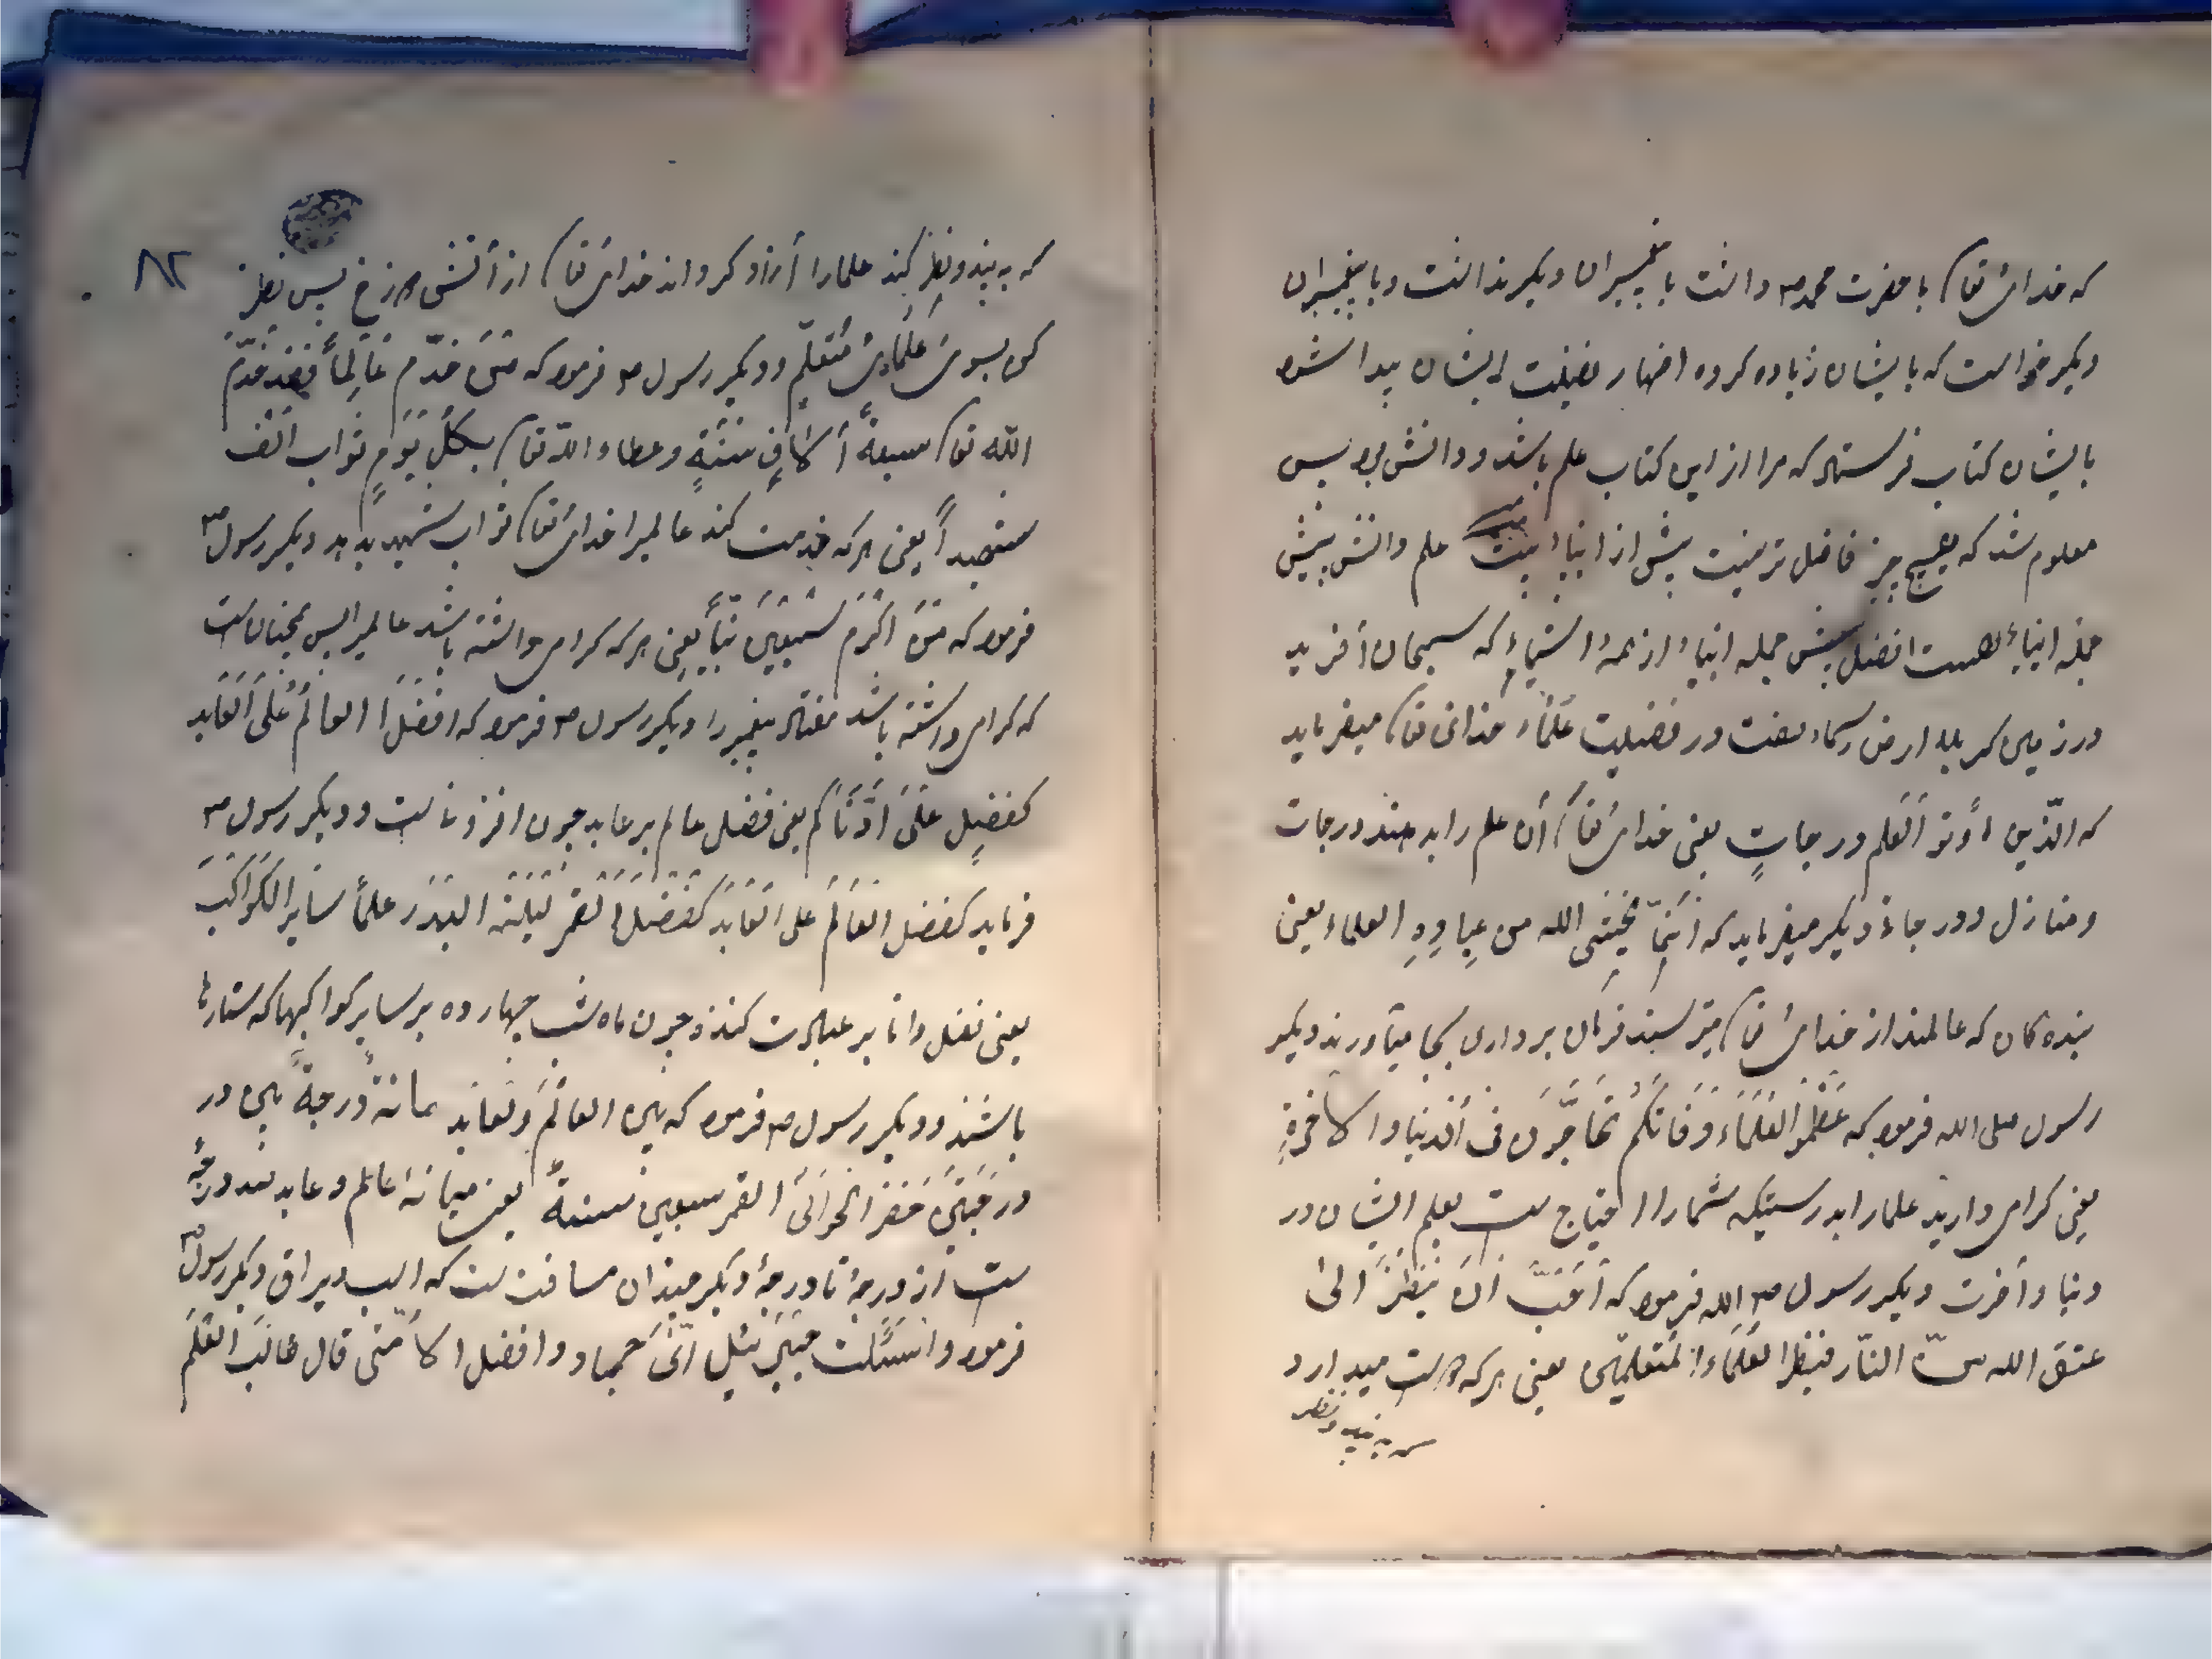 که خدای تعا با حضرت محمد ص دانست با پیغمبران دیگر ندانست و با پیغمبران
دیگر خواست که بایشان زیاده کرده اظهار فضیلت ایشان پیدا شود
بایشان کتاب فرستاد که مرا از این کتاب علم باشد و دانش بود پس
معلوم شد که هیچ چیز فاضل تر نیست پیش از انبیاء علم و دانش پیش
جمله انبیاء افضل پیش جمله انبیاء از همه اشیاء که سبحان آفرید
در زمین در فضیلت علماء خدای تعا میفرماید
که الّذین اُوتو اَلعلم درجاتٍ یعنی خدای تعا آن علم را بدهند درجات
و منازل و درجاة دیگر میفرماید که اَنّما یَخشی الله من عِبادِهِ العلماء یعنی
بنده کان که عالمند از خدای تعا میترسند فرمان برداری بجا میآورند دیگر
رسول صلی الله فرمود که عَظّمو العُلَمَاء فی اَلدنیا و الاخرةِ
یعنی کرامی دارید علمارا بدرستیکه شمارا احتیاج ست بعلم ایشان در
دنیا و آخرت دیگر رسول ص الله فرمود که اَحَبَّ اَنْ یَنظُرَ الی
عتق الله منَ النّار فَینظر العُلَمَاء المتعلمین یعنی هر که دوست میدارد
که به بیند و نظر
۸۲
که به بیند و نظر کند علمارا آزاد کرداند خدای تعا از آتش دوزخ پس نظر
کن بسوی عُلَمَایِ مُتعلم و دیگر رسول ص فرمود که مَنْ خدّم عَالِماً فقد خدّمَ
الله تعا سبعةً آلافٍ سَنَةٍ و عطاء الله تعا بکلّ یَومٍ ثواب الف
یعنی هر که خدمت کند عالمیرا خدای تعا ثواب شهید بدهد دیگر رسول ص
فرمود که مَنْ اکرَم سَبعِینَ نبیّاً یعنی هر که کرامی داشته باشد عالمیرا پس همچنان ست
که کرامی داشته باشد هفتاد پیغمبر را دیگر رسول ص فرمود که افضَلَ العالمُ عَلَی اَلعَابد
کفضلٍ عَلَی اَدْنَاکم یعنی فضل عالم بر عابد چون افزونا ست و دیگر رسول ص
فرماید کفضل العَالَم علی العَابَد کفَضَلَ القمر لَیلَتَه البَدر علَی سَایر الکَواکبَ
یعنی فضل دانا بر عبادت کننده چون ماه شب چهارده بر سایر کواکبها که ستارها
باشند و دیگر رسول ص فرمود که بین العالَم و العَابد مائة درجةً بین در
درجَتینَ القمر سبعین سنةً یعنی میانهٔ عالم و عابد صد درجهٔ
ست از درجهٔ تا درجهٔ دیگر میزان مسافت ست که اسب دیگر رسول ص
فرمود و اسَئلت جَبرَئیل قال طالبَ العلم